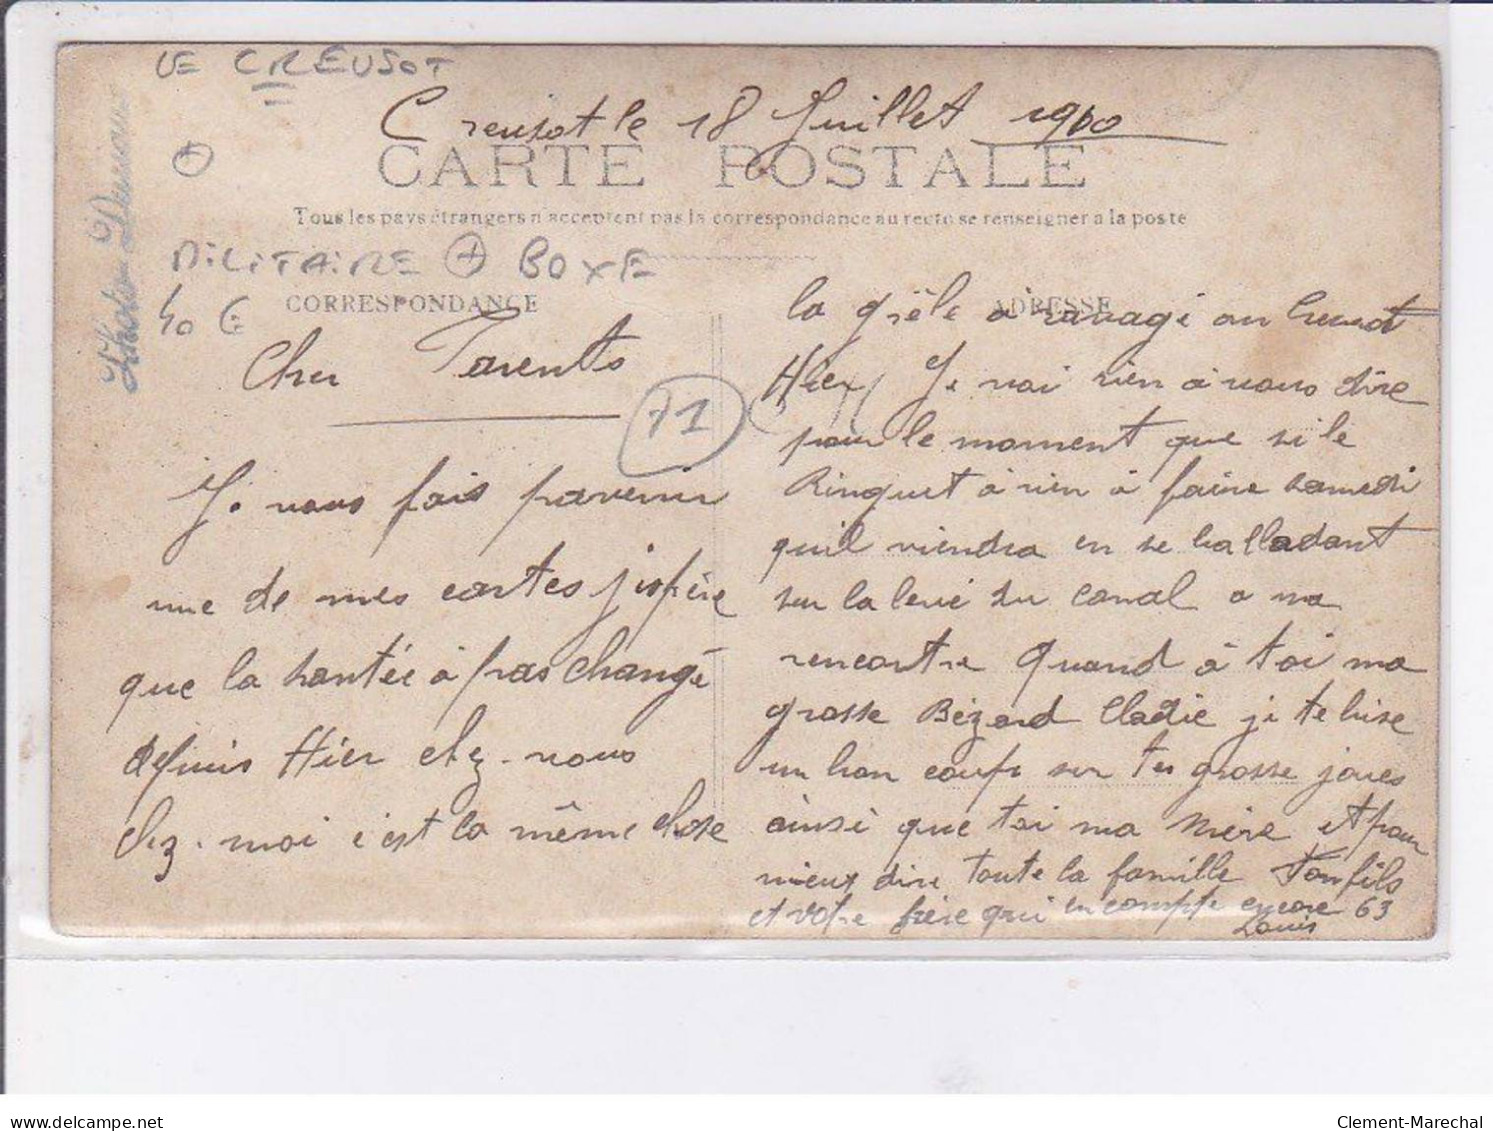 LE CREUSOT
Creusot le 18 Juillet 1910
CARTE POSTALE
Tous les pays étrangers n'acceptent pas la correspondance au recto se renseigner à la poste
MILITAIRE + BOXE
40 €
CORRESPONDANCE
ADRESSE
Cher Parents
71
Je vous fais parvenir
une de mes cartes j'espère
que la santée à pas changé
depuis Hier chez-vous
chez-moi c'est la même chose
la grêle à ravagé au Creusot
Hier Je vai rien à vous dire
pour le moment que si le
Ringuet à rien à faire samedi
qu'il viendra en se balladant
sur la levé du canal a ma
rencontre Quand à toi ma
grosse Bézard Cladie je te bise
un bon coup sur tes grosse joues
ainsi que toi ma Mère et pour
mieux dire toute la famille Ton fils
et votre frère qui en compte encore 63
Louis
delcampe.net
Clement-Marechal